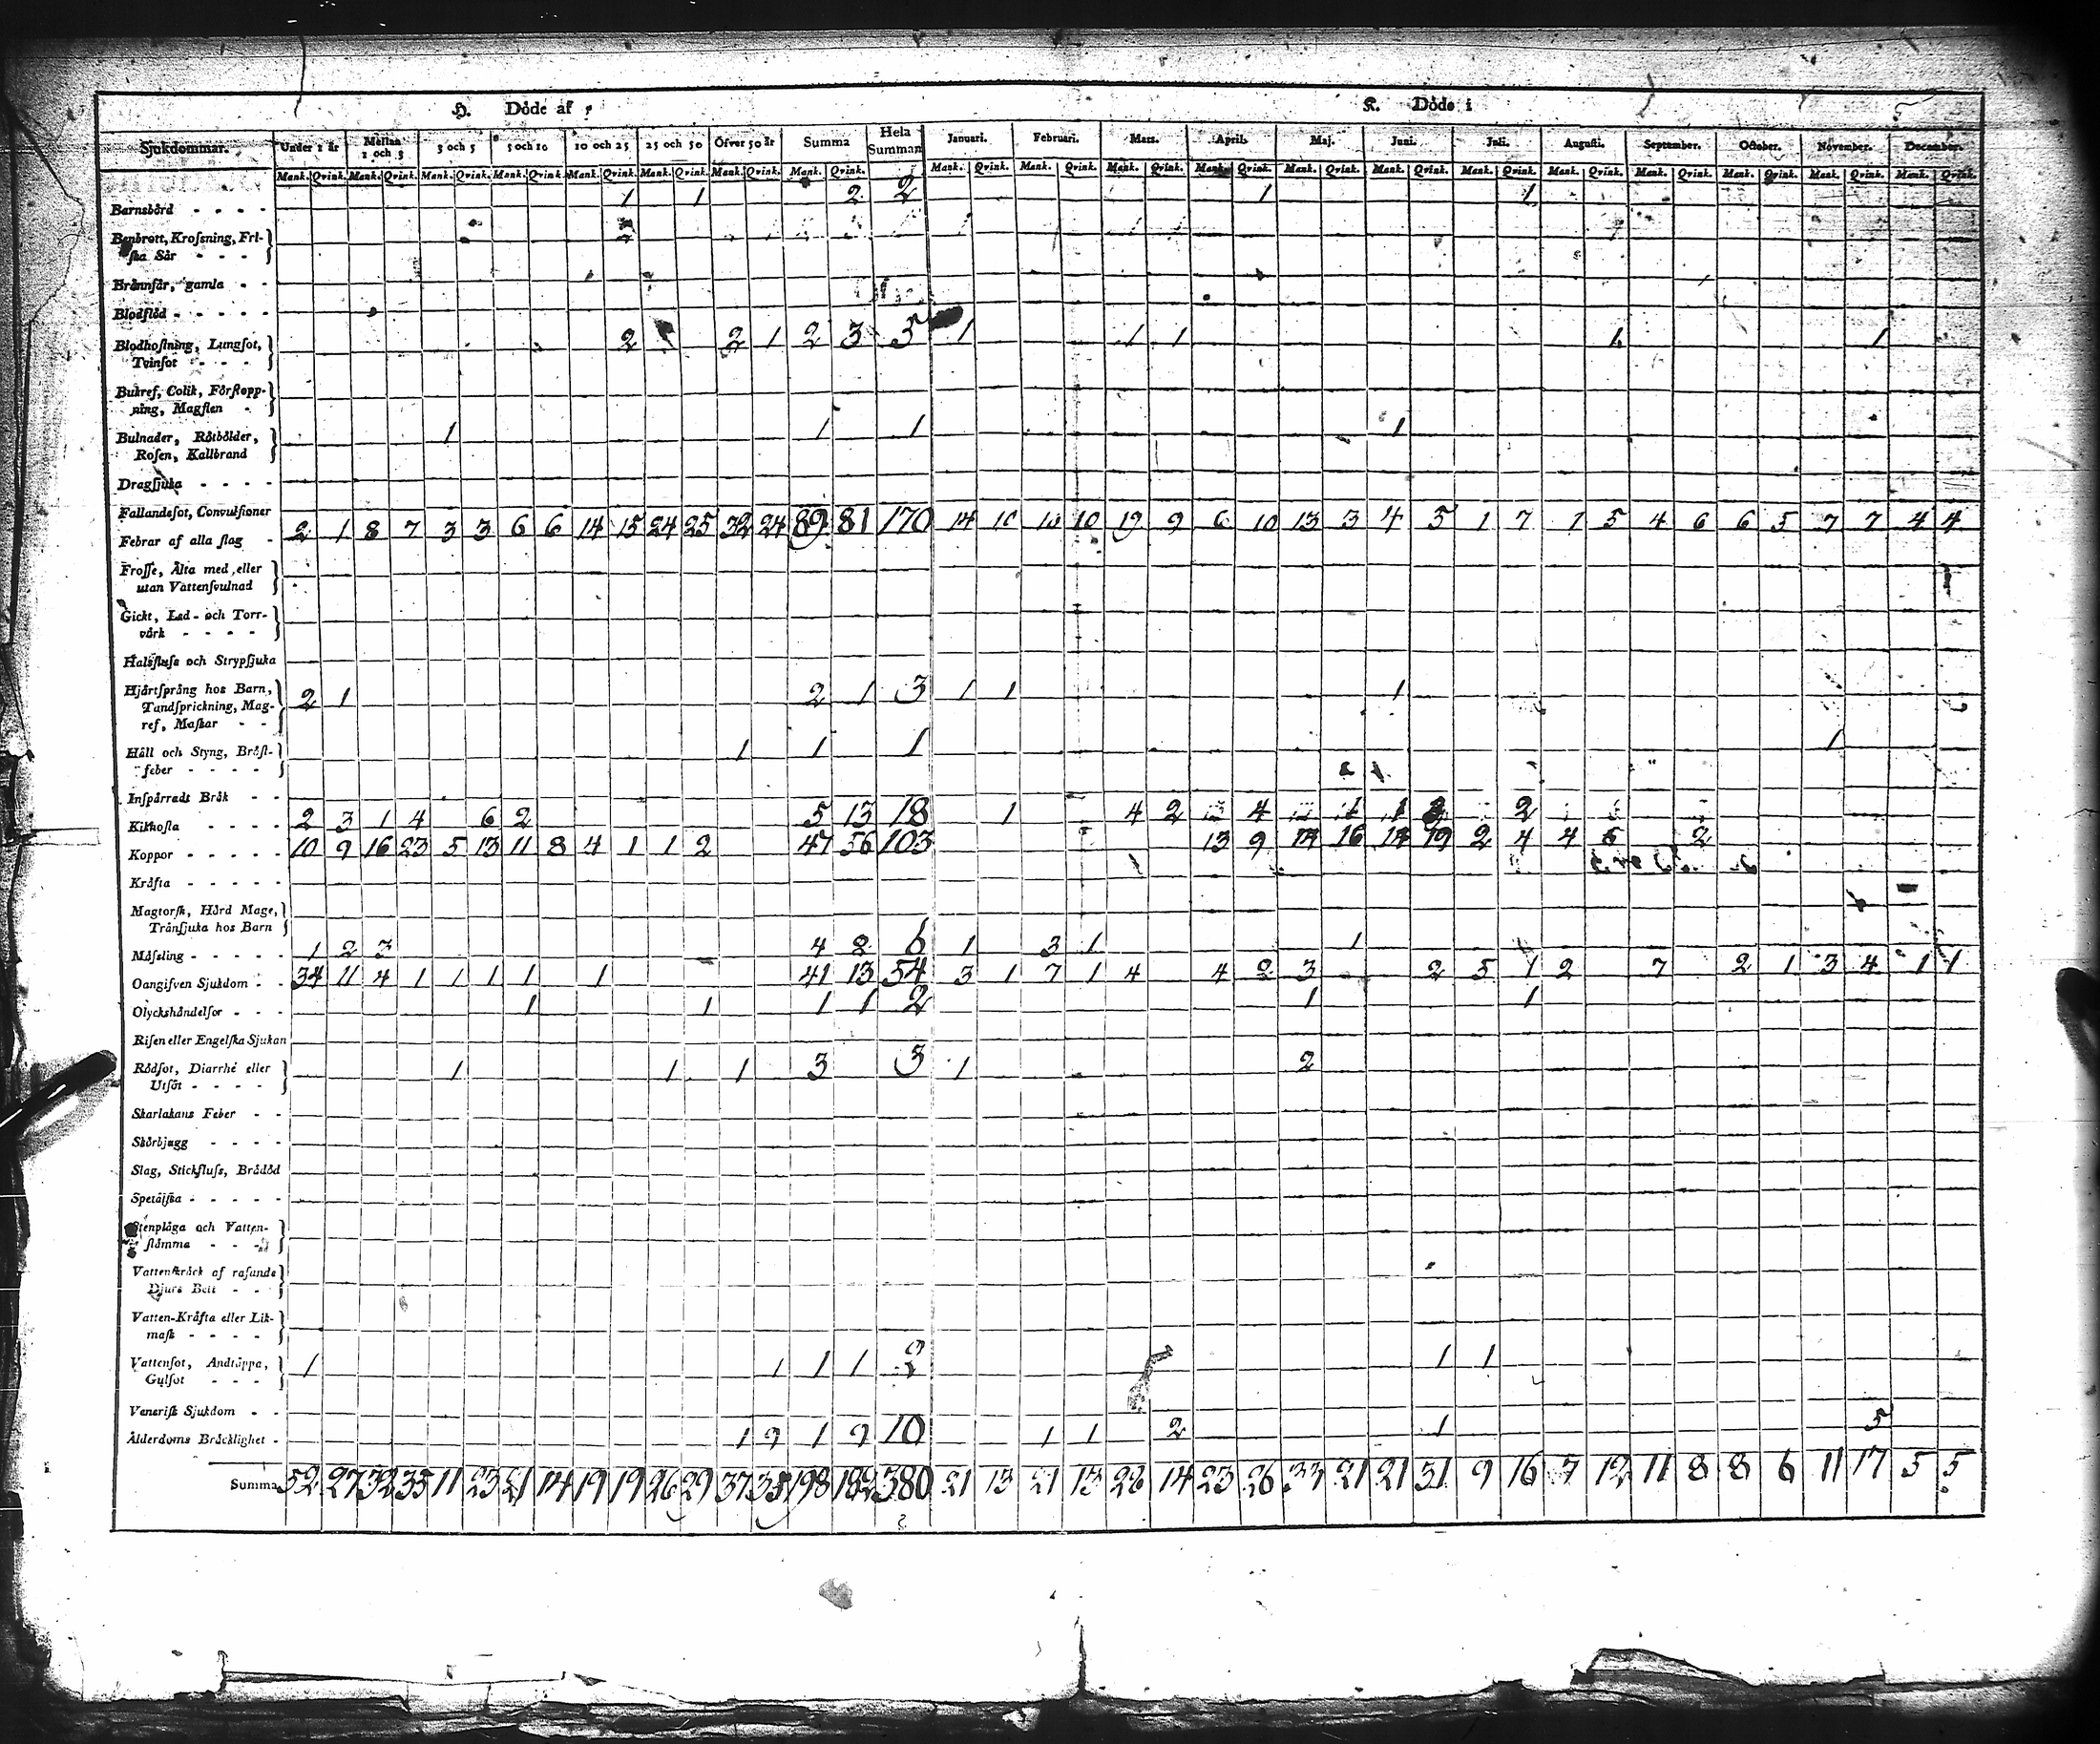 H. Döde af
K. Döde i
Sjukdommar. Under 1 år Mellan 1 och 3 3 och 5 5 och 10 10 och 25 25 och 50 Öfver 50 år Summa Hela Summan Januari. Februari. Mars. April. Maj. Juni. Juli. Augusti. September. October. November. December.
Mank. Qvink. Mank. Qvink. Mank. Qvink. Mank. Qvink. Mank. Qvink. Mank. Qvink. Mank. Qvink. Mank. Qvink. Mank. Qvink. Mank. Qvink. Mank. Qvink. Mank. Qvink. Mank. Qvink. Mank. Qvink. Mank. Qvink. Mank. Qvink. Mank. Qvink. Mank. Qvink. Mank. Qvink. Mank. Qvink.
Barnsbörd 1 1 2 2 1 1
Benbrott, Krosſning, Fri-
ſka Sår
Brännſår, gamla
Blodflöd
Blodhoſtning, Lungſot, 2 2 1 2 3 5 1 1 1 1 1
Tvinſot
Bukref, Colik, Förſtopp-
ning, Magſlen
Bulnader, Rötbölder, 1 1 1 1
Roſen, Kallbrand
Dragſjuka
Fallandeſot, Convulſioner
Febrar af alla ſlag 2 1 8 7 3 3 6 6 14 15 24 25 32 24 89 81 170 14 10 10 10 19 9 6 10 13 3 4 5 1 7 1 5 4 6 6 5 7 7 4 4
Froſſe, Älta med eller
utan Vattenſvulnad
Gickt, Led- och Torr-
värk
Halsfluſs och Strypſjuka
Hjärtſprång hos Barn, 2 1 2 1 3 1 1 1
Tandſprickning, Mag-
ref, Maſkar
Håll och Styng, Bröſt- 1 1 1 1
feber
Inſpärradt Bråk
Kikhoſta 2 3 1 4 6 2 5 13 18 1 4 2 4 1 1 2 2
Koppor 10 9 16 23 5 13 11 8 4 1 1 2 47 56 103 13 9 14 16 14 19 2 4 4 5 2
Kräfta
Magtorſk, Hård Mage,
Tränſjuka hos Barn
Måſsling 1 2 3 4 2 6 1 3 1 1
Oangifven Sjukdom 34 11 4 1 1 1 1 1 41 13 54 3 1 7 1 4 4 2 3 2 5 1 2 7 2 1 3 4 1 1
Olyckshändelſer 1 1 1 1 2 1 1
Riſen eller Engelſka Sjukan
Rödſot, Diarrhé eller 1 1 1 3 3 1 2
Utſöt
Skarlakans Feber
Skörbjugg
Slag, Stickfluſs, Brådöd
Spetälſka
Stenplåga och Vatten-
ſtämma
Vattenſkräck af raſande
Djurs Bett
Vatten-Kräfta eller Lik-
maſk
Vattenſot, Andtäppa, 1 1 1 1 2 1 1
Gulſot
Veneriſk Sjukdom
Ålderdoms Bräcklighet 1 9 1 9 10 1 1 2 1 5
Summa 52 27 32 35 11 23 21 14 19 19 26 29 37 35 198 182 380 21 13 21 13 28 14 23 26 33 21 21 31 9 16 7 12 11 8 8 6 11 17 5 5